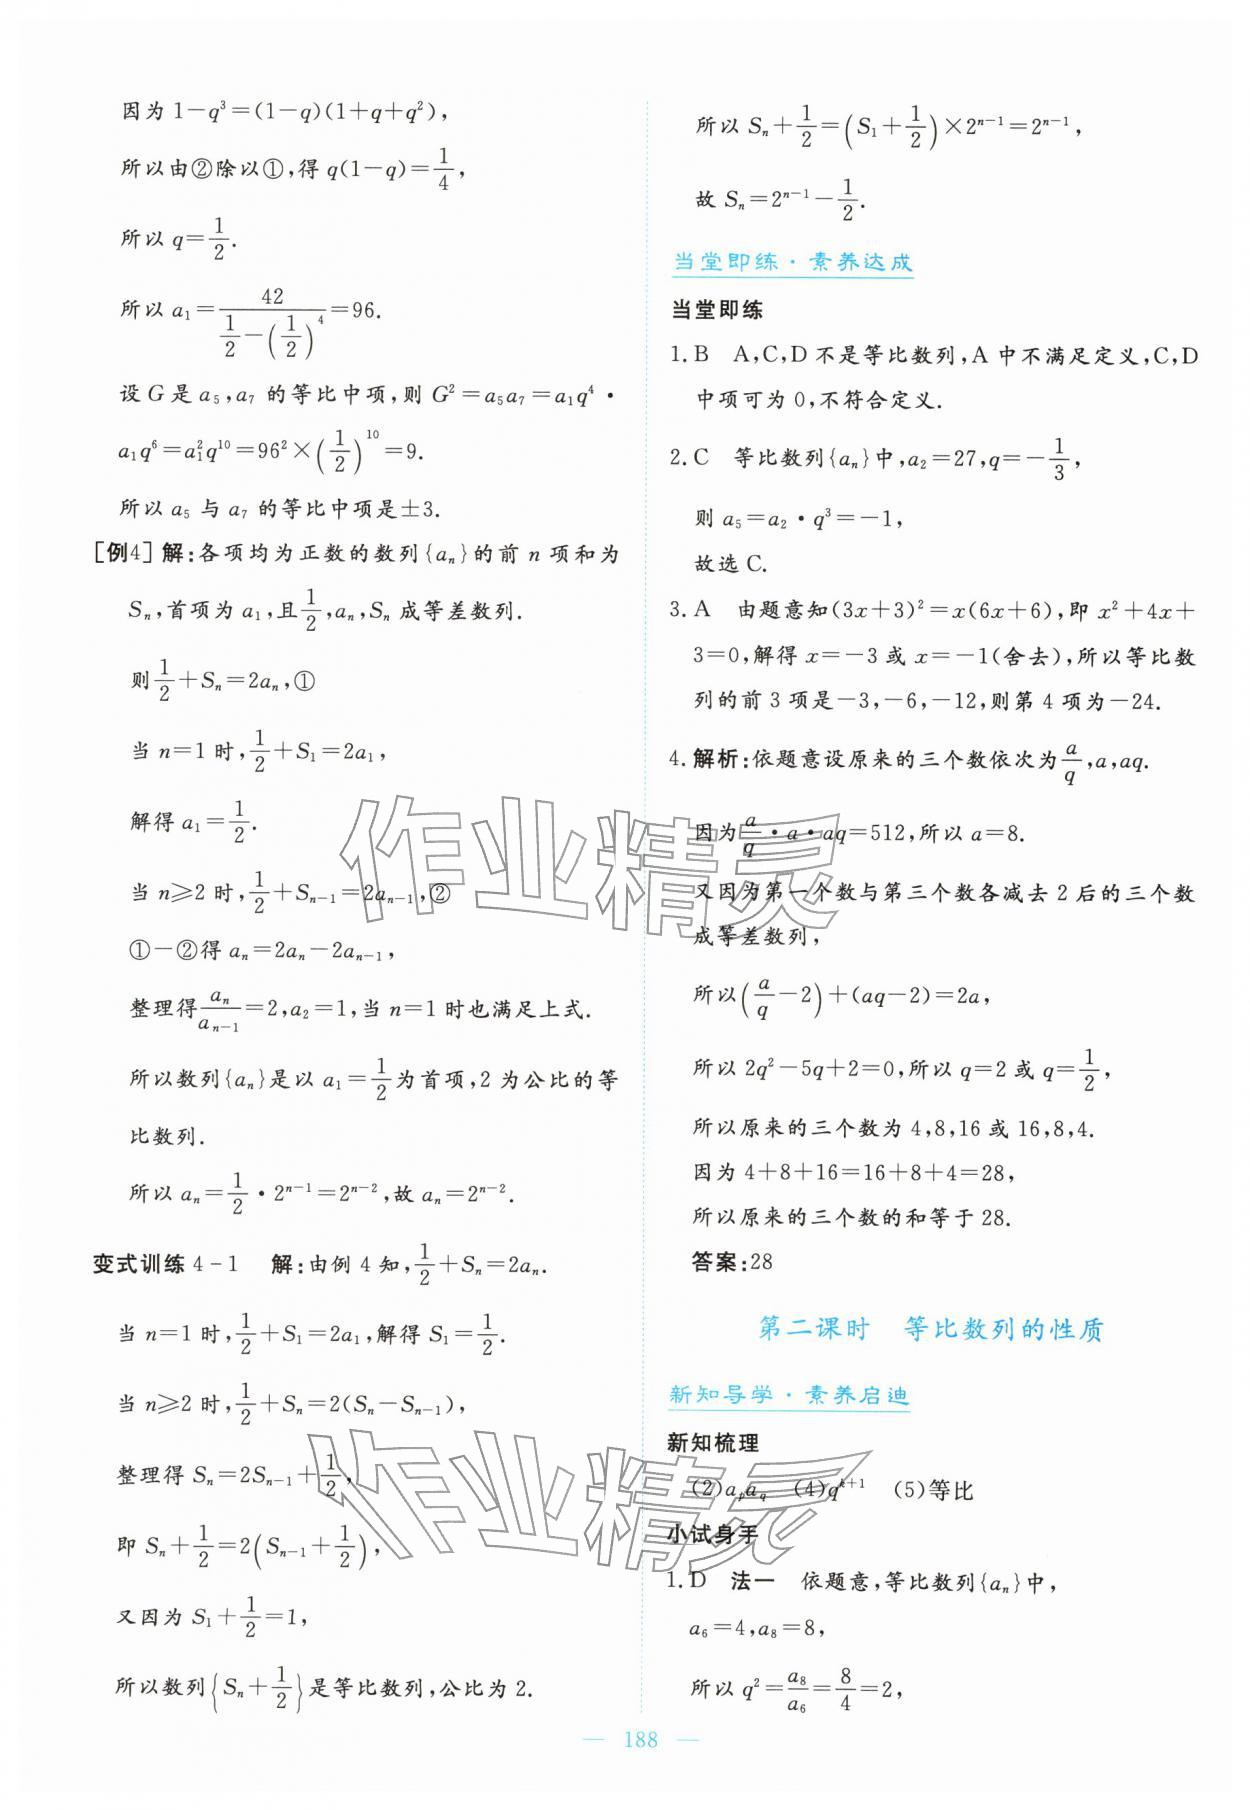 因为 1－q³＝(1－q)(1＋q＋q²)，
所以由②除以①，得 q(1－q)＝1/4，
所以 q＝1/2.
所以 a₁＝42/(1/2－(1/2)⁴)＝96.
设 G 是 a₅，a₇ 的等比中项，则 G²＝a₅a₇＝a₁q⁴·
a₁q⁶＝a₁²q¹⁰＝96²×(1/2)¹⁰＝9.
所以 a₅ 与 a₇ 的等比中项是±3.
［例4］解：各项均为正数的数列{aₙ}的前 n 项和为
Sₙ，首项为 a₁，且1/2，aₙ，Sₙ 成等差数列.
则1/2＋Sₙ＝2aₙ，①
当 n＝1 时，1/2＋S₁＝2a₁，
解得 a₁＝1/2.
当 n≥2 时，1/2＋Sₙ₋₁＝2aₙ₋₁，②
①－②得 aₙ＝2aₙ－2aₙ₋₁，
整理得aₙ/aₙ₋₁＝2，a₂＝1，当 n＝1 时也满足上式.
所以数列{aₙ}是以 a₁＝1/2为首项，2 为公比的等
比数列.
所以 aₙ＝1/2·2ⁿ⁻¹＝2ⁿ⁻²，故 aₙ＝2ⁿ⁻².
变式训练 4－1　解：由例 4 知，1/2＋Sₙ＝2aₙ.
当 n＝1 时，1/2＋S₁＝2a₁，解得 S₁＝1/2.
当 n≥2 时，1/2＋Sₙ＝2(Sₙ－Sₙ₋₁)，
整理得 Sₙ＝2Sₙ₋₁＋1/2，
即 Sₙ＋1/2＝2(Sₙ₋₁＋1/2)，
又因为 S₁＋1/2＝1，
所以数列{Sₙ＋1/2}是等比数列，公比为 2.
所以 Sₙ＋1/2＝(S₁＋1/2)×2ⁿ⁻¹＝2ⁿ⁻¹，
故 Sₙ＝2ⁿ⁻¹－1/2.
当堂即练·素养达成
当堂即练
1. B　A，C，D 不是等比数列，A 中不满足定义，C，D
中项可为 0，不符合定义.
2. C　等比数列{aₙ}中，a₂＝27，q＝－1/3，
则 a₅＝a₂·q³＝－1，
故选 C.
3. A　由题意知(3x＋3)²＝x(6x＋6)，即 x²＋4x＋
3＝0，解得 x＝－3 或 x＝－1(舍去)，所以等比数
列的前 3 项是－3，－6，－12，则第 4 项为－24.
4. 解析：依题意设原来的三个数依次为a/q，a，aq.
因为a/q·a·aq＝512，所以 a＝8.
又因为第一个数与第三个数各减去 2 后的三个数
成等差数列，
所以(a/q－2)＋(aq－2)＝2a，
所以 2q²－5q＋2＝0，所以 q＝2 或 q＝1/2，
所以原来的三个数为 4，8，16 或 16，8，4.
因为 4＋8＋16＝16＋8＋4＝28，
所以原来的三个数的和等于 28.
答案：28
第二课时　等比数列的性质
新知导学·素养启迪
新知梳理
(2)aₚa_q　(4)qᵏ⁺¹　(5)等比
小试身手
1. D　法一　依题意，等比数列{aₙ}中，
a₆＝4，a₈＝8，
所以 q²＝a₈/a₆＝8/4＝2，
— 188 —
作业精灵
作业精灵